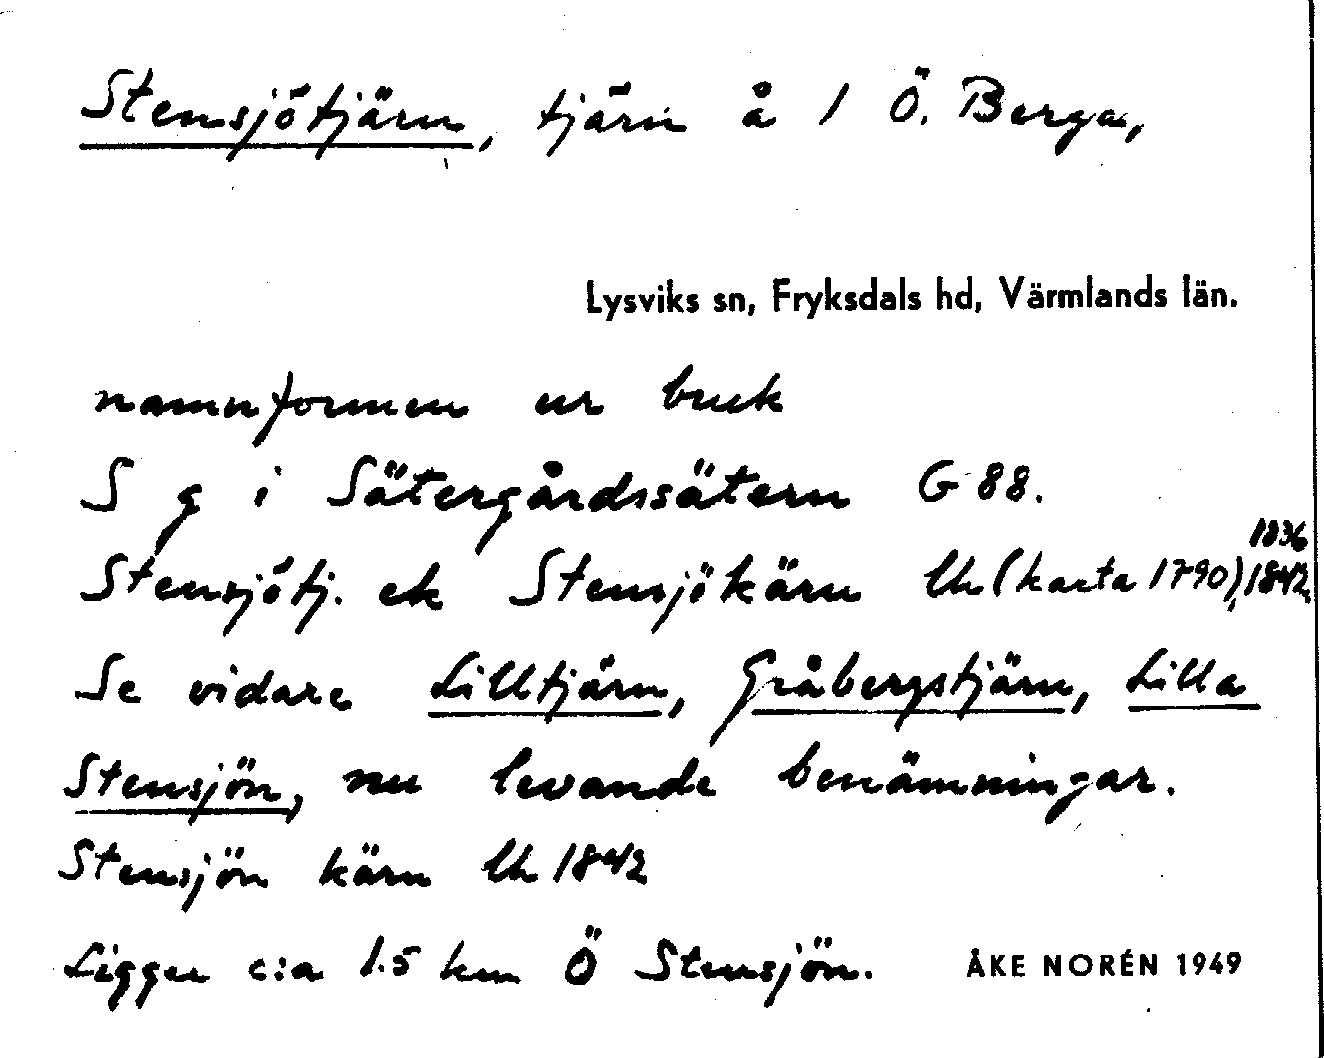 Stensjötjärn, tjärn å 1 Ö. Berga,
Lysviks sn, Fryksdals hd, Värmlands län.
namnformen ur bruk
S g i Sätergårdssätern G 88.
1836
Stensjötj. ek Stensjökärn Uh (karta 1790), 1842
Se vidare Lilltjärn, Gråbergstjärn, Lilla
Stensjön, nu levande benämningar.
Stensjön kärn Uh 1842
Ligger c:a 1.5 km Ö Stensjön.
ÅKE NORÉN 1949